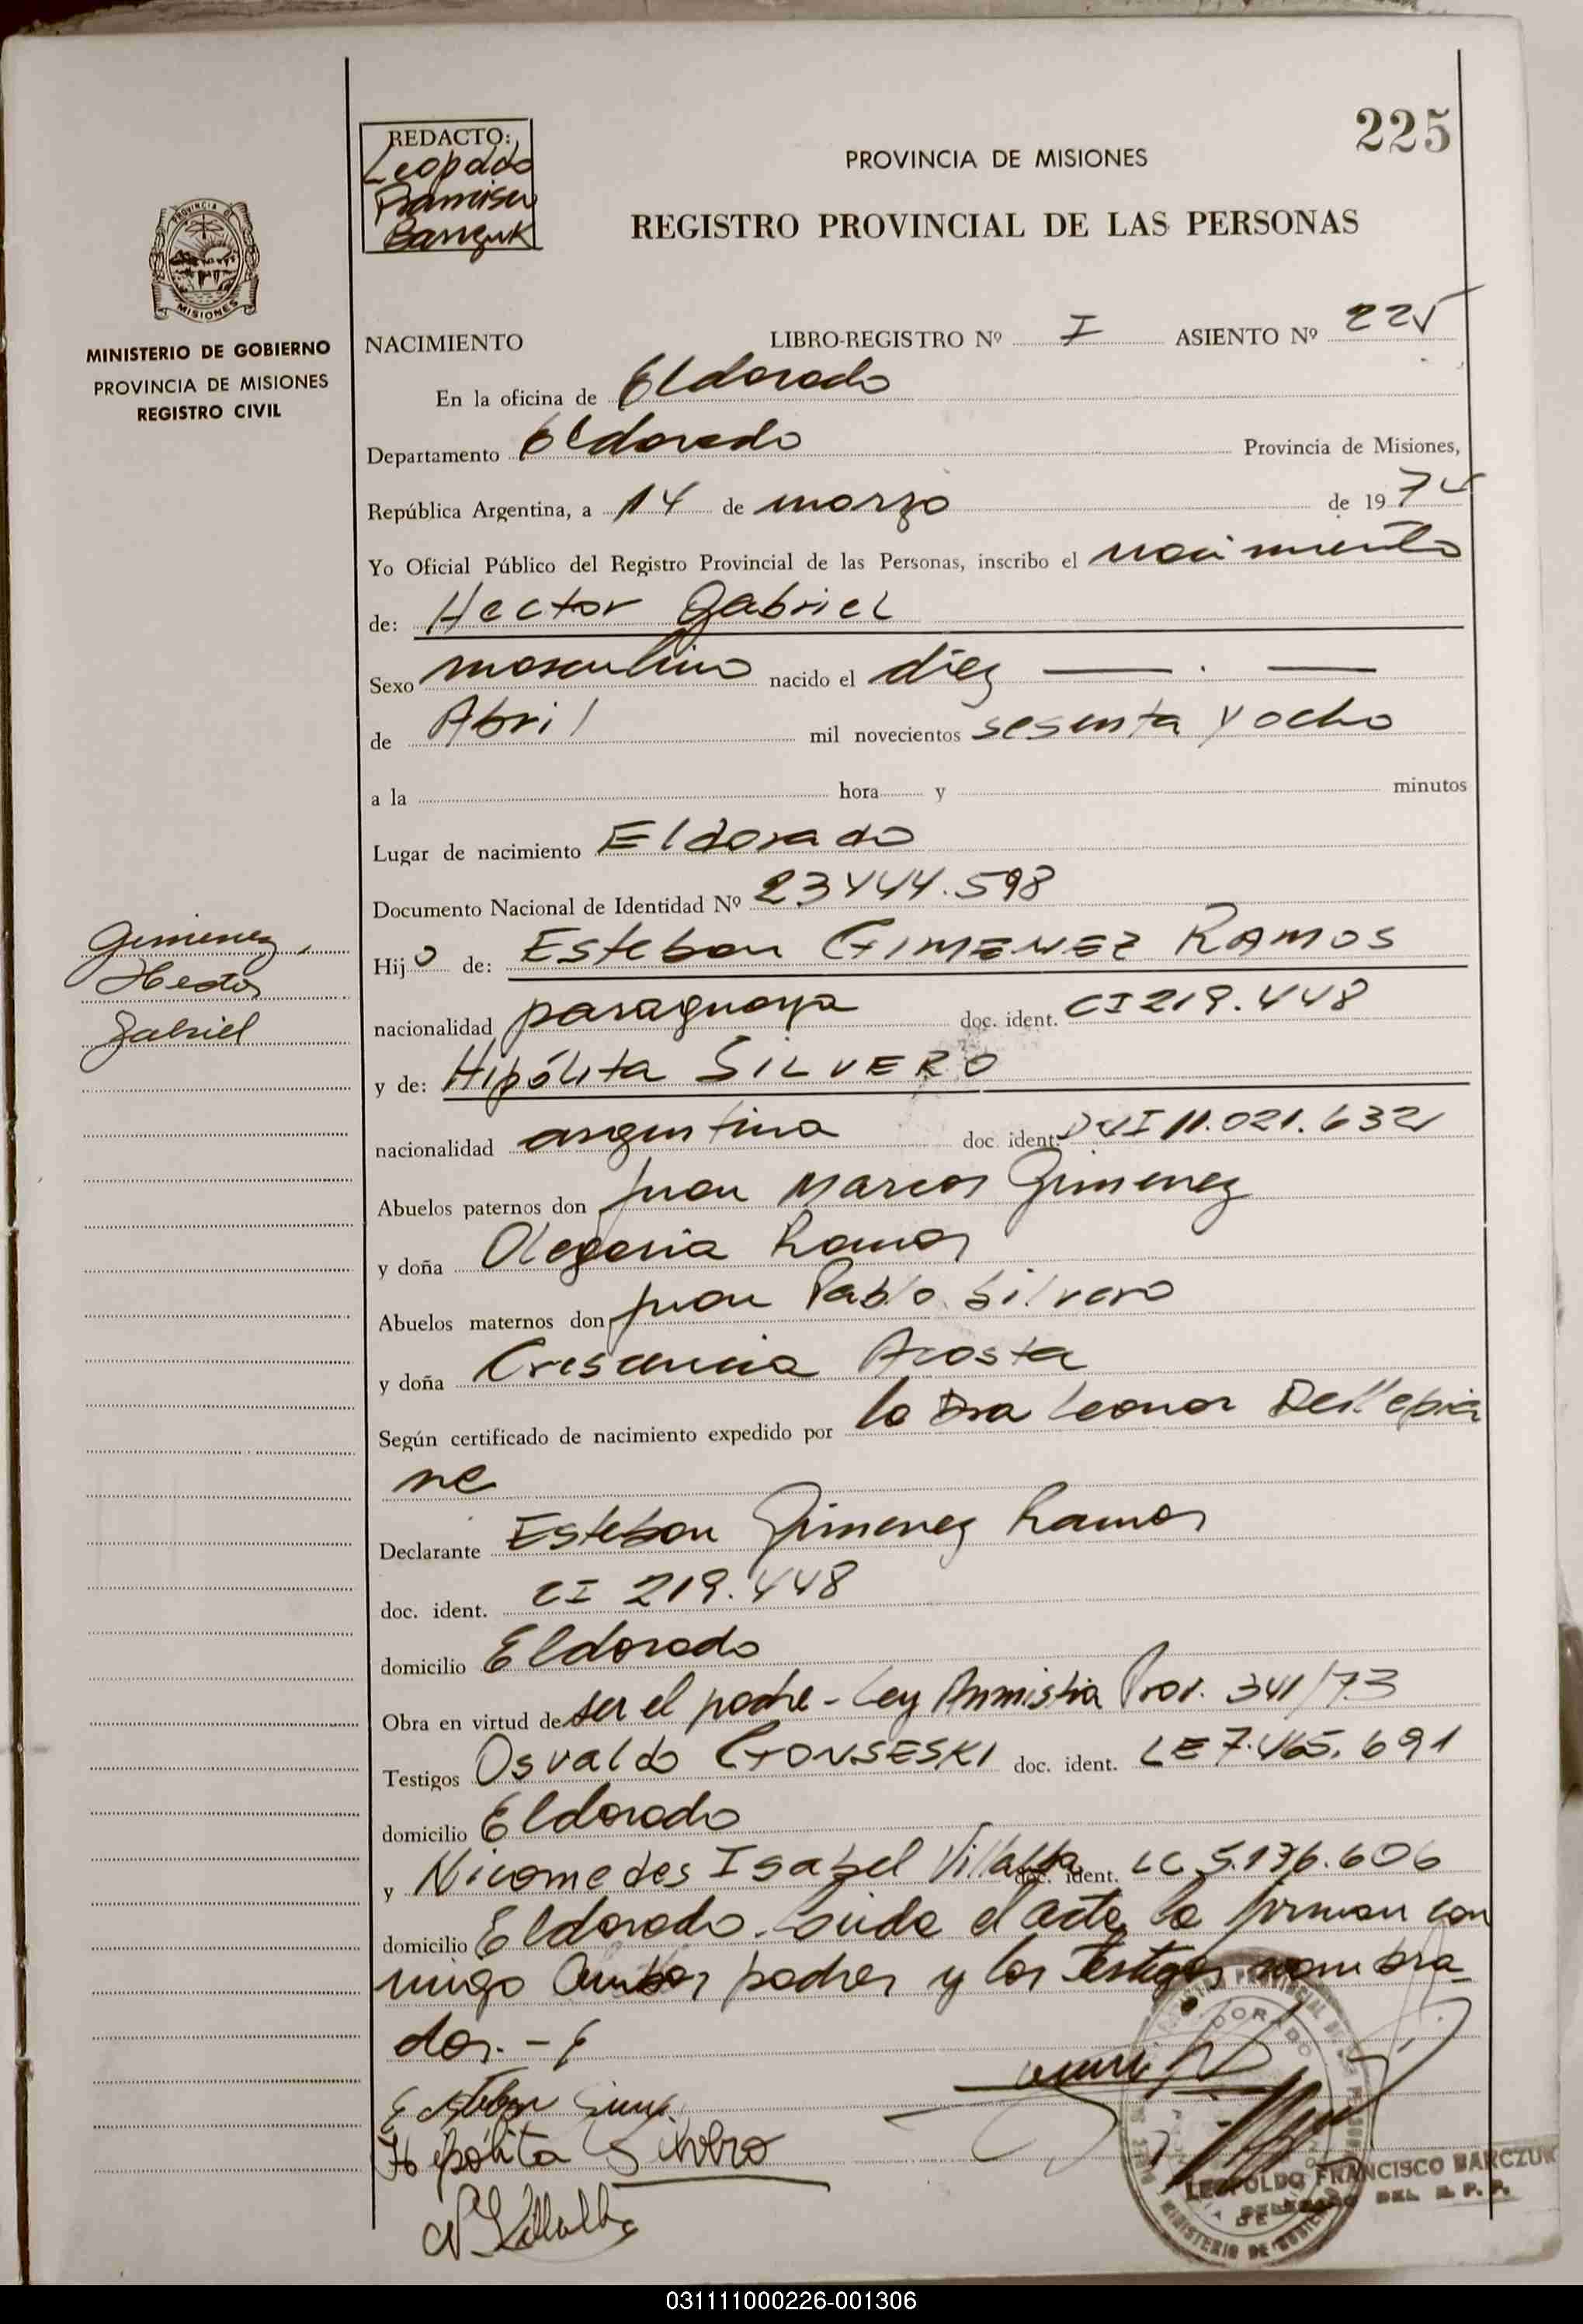 225
REDACTO:
Leopoldo
Francisco
Barczuk
PROVINCIA DE MISIONES
REGISTRO PROVINCIAL DE LAS PERSONAS
PROVINCIA DE
MISIONES
MINISTERIO DE GOBIERNO
PROVINCIA DE MISIONES
REGISTRO CIVIL
NACIMIENTO LIBRO-REGISTRO Nº I ASIENTO Nº 225
En la oficina de Eldorado
Departamento Eldorado Provincia de Misiones,
República Argentina, a 14 de marzo de 19 74
Yo Oficial Público del Registro Provincial de las Personas, inscribo el nacimiento
de: Hector Gabriel
Sexo masculino nacido el diez
de Abril mil novecientos sesenta y ocho
a la hora y minutos
Lugar de nacimiento Eldorado
Documento Nacional de Identidad Nº 23444.598
Gimenez,
Hector
Gabriel
Hijo de: Esteban GIMENEZ RAMOS
nacionalidad paraguaya doc. ident. CI 219.448
y de: Hipólita SILVERO
nacionalidad argentina doc. ident. DNI 11.021.632
Abuelos paternos don Juan Marcos Gimenez
y doña Olegaria Ramos
Abuelos maternos don Juan Pablo Silvero
y doña Crescencia Acosta
Según certificado de nacimiento expedido por la Dra Leonor Dellepia
ne
Declarante Esteban Gimenez Ramos
doc. ident. CI 219.448
domicilio Eldorado
Obra en virtud de ser el padre - Ley Amnistia Prov. 341/73
Testigos Osvaldo GONSESKI doc. ident. LE 7.465.691
domicilio Eldorado
y Nicomedes Isabel Villalba doc. ident. LC 5.136.606
domicilio Eldorado. Leida el acta, la firman con
migo Ambos padres y los Testigos nombra
dos.-
Esteban Gimz.
Hipólita Silvero
N. I. Villalba
LEOPOLDO FRANCISCO BARCZUK
DELEGADO DEL R. P. P.
031111000226-001306